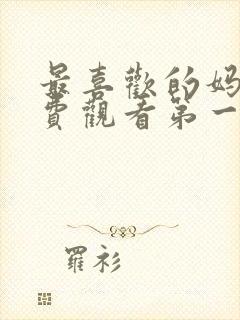 最喜歡的妈
費觀看第一
羅衫